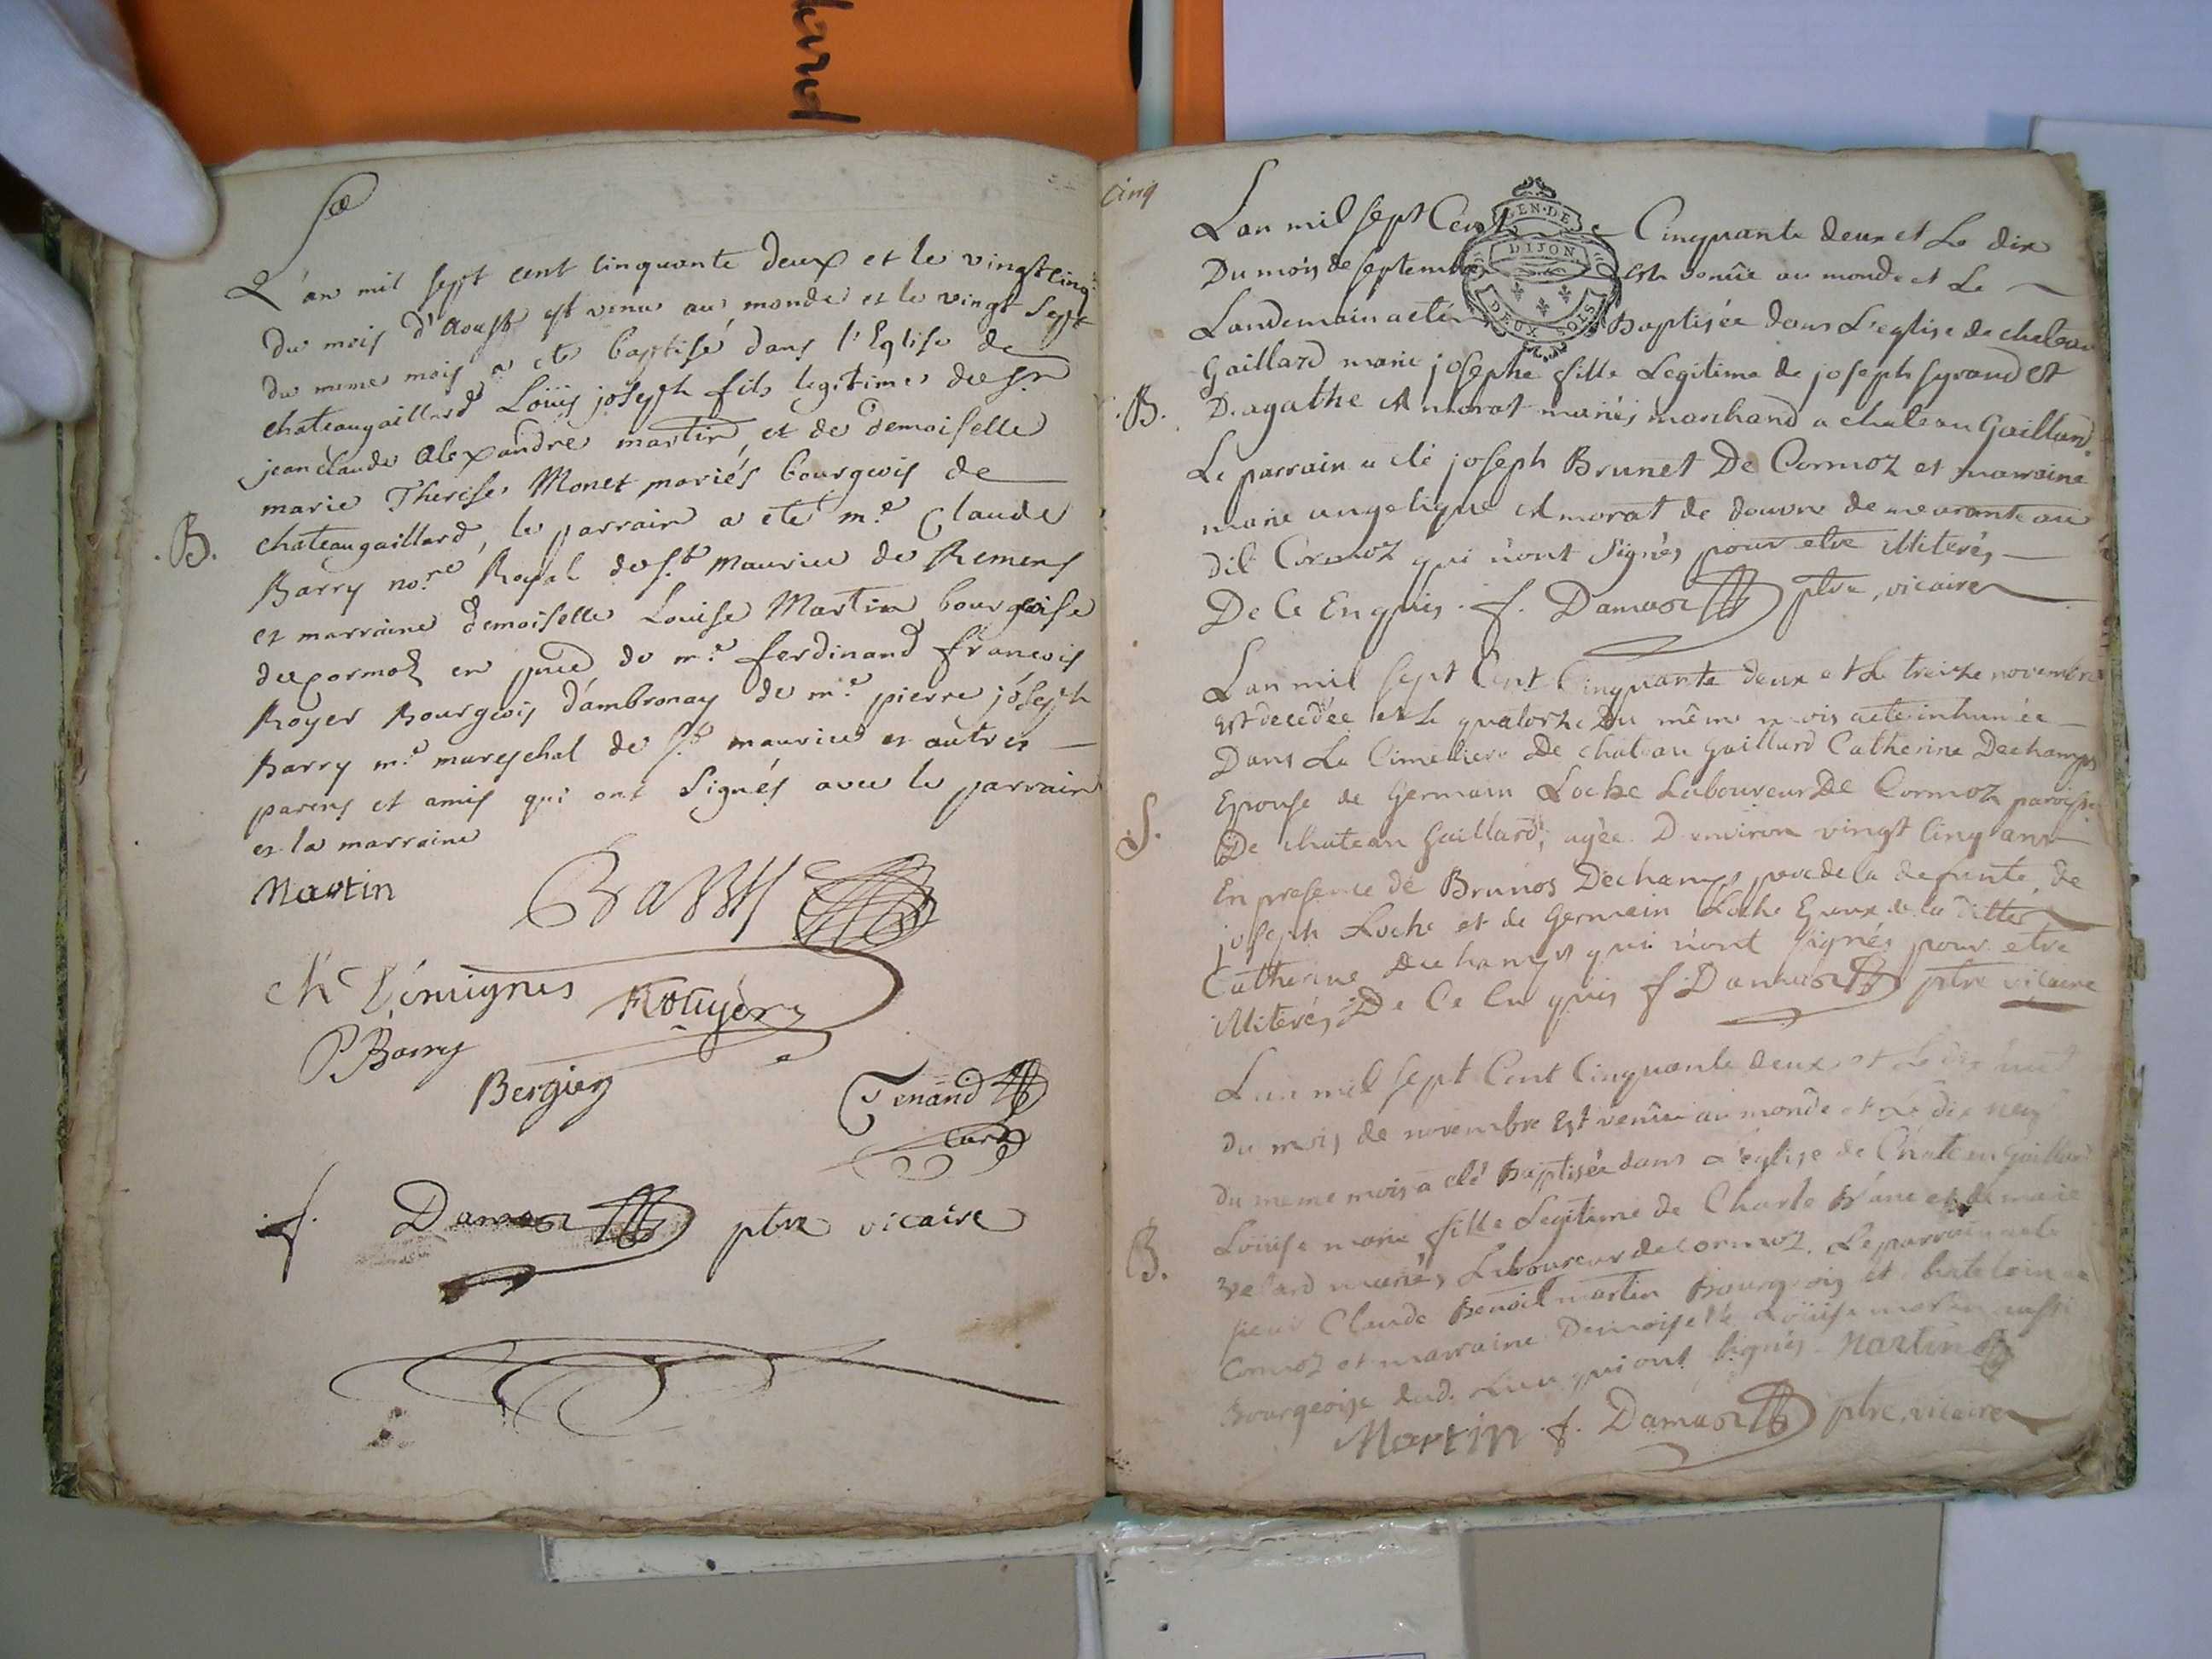 L'an mil sept cent cinquante deux et le vingtcinq
du mois d'Aoust est venu au monde et le vingt sept
du meme mois a eté baptisé dans l'Eglise de
chateaugaillard Loüis joseph fils legitime du sr
jean claude Alexandre martin, et de demoiselle
marie Therese Monet mariés bourgeois de
chateaugaillard, le parrain a eté m.e Claude
.B.
Barry no.re Royal de st maurice de Remens
et marraine demoiselle Louise Martin bourgeoise
de cormoz en de m.e ferdinand françois
Royer Bourgeois d'ambronay de m.e pierre joseph
Barry m.e mareschal de st maurice et autres
parens et amis qui ont signés avec le parrain
et la marraine
Martin Barry
P Barry
Bergier
Tenand
curé
f. Damaz ptre vicaire
cinq
GEN. DE
DIJON
DEUX SOLS
Lan mil sept Cent Cinquante deux et Le dix
Du mois de septembre est venüe au monde et Le
Landemain a eté Baptisée dans L'eglise de chateau
Gaillard marie josephe fille Legitime de joseph syraud et
.B.
D'agathe morat mariés marchand a chateau Gaillard
Le parrain a eté joseph Brunet De Cormoz et marraine
marie angelique morat de douvre demeurante au
dit Cormoz qui n'ont signés pour etre illiterés
De Ce Enquis. f. Damaz ptre, vicaire
Lan mil sept Cent Cinquante deux et Le treize novembre
est decedée et Le quatorze Du même mois a eté inhumée
Dans Le Cimetiere De chateau gaillard Catherine Dechamps
Epouse de Germain Loche Laboureur De Cormoz paroisse
S.
De chateau Gaillard, agée D'environ vingt Cinq ans
En presence de Brunos Dechamps pere de la defunte, de
joseph Loche et de Germain Loche Epoux de la ditte
Catherine Dechamps qui n'ont signés pour etre
illiterés De Ce Enquis f. Damaz ptre vicaire
Lan mil sept Cent Cinquante deux et Le dix huit
du mois de novembre Est venüe au monde et Le dix neuf
du meme mois a eté Baptisée dans L'eglise de Chateau Gaillard
Loüise marie fille Legitime de Charle et de marie
B.
velard mariés Laboureur de Cormoz, Le parrain a eté
sieur Claude Benoit martin Bourgeois et batelain de
Cormoz et marraine Demoiselle Loüise martin aussi
Bourgeoise dud. Lieu qui ont signés. Martin
Martin f. Damaz ptre, vicaire